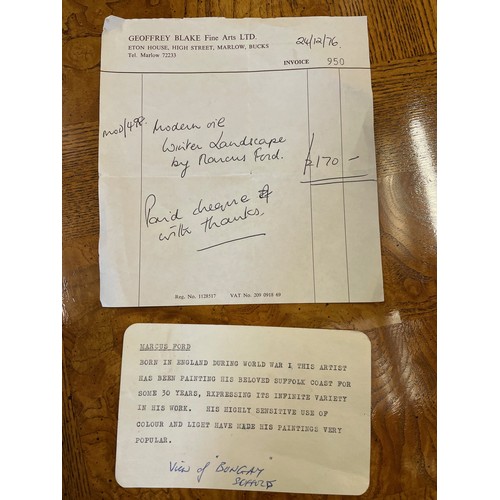 GEOFFREY BLAKE Fine Arts LTD.
ETON HOUSE, HIGH STREET, MARLOW, BUCKS
Tel. Marlow 72233
24/12/76.
INVOICE 950
mod/498. Modern oil
Winter Landscape
by Marcus Ford.
170 —
Paid cheque
with thanks.
Reg. No. 1128517 VAT No. 209 0918 69
MARCUS FORD
BORN IN ENGLAND DURING WORLD WAR I, THIS ARTIST
HAS BEEN PAINTING HIS BELOVED SUFFOLK COAST FOR
SOME 30 YEARS, RXPRESSING ITS INFINITE VARIETY
IN HIS WORK. HIS HIGHLY SENSITIVE USE OF
COLOUR AND LIGHT HAVE MADE HIS PAINTINGS VERY
POPULAR.
View of "BUNGAY"